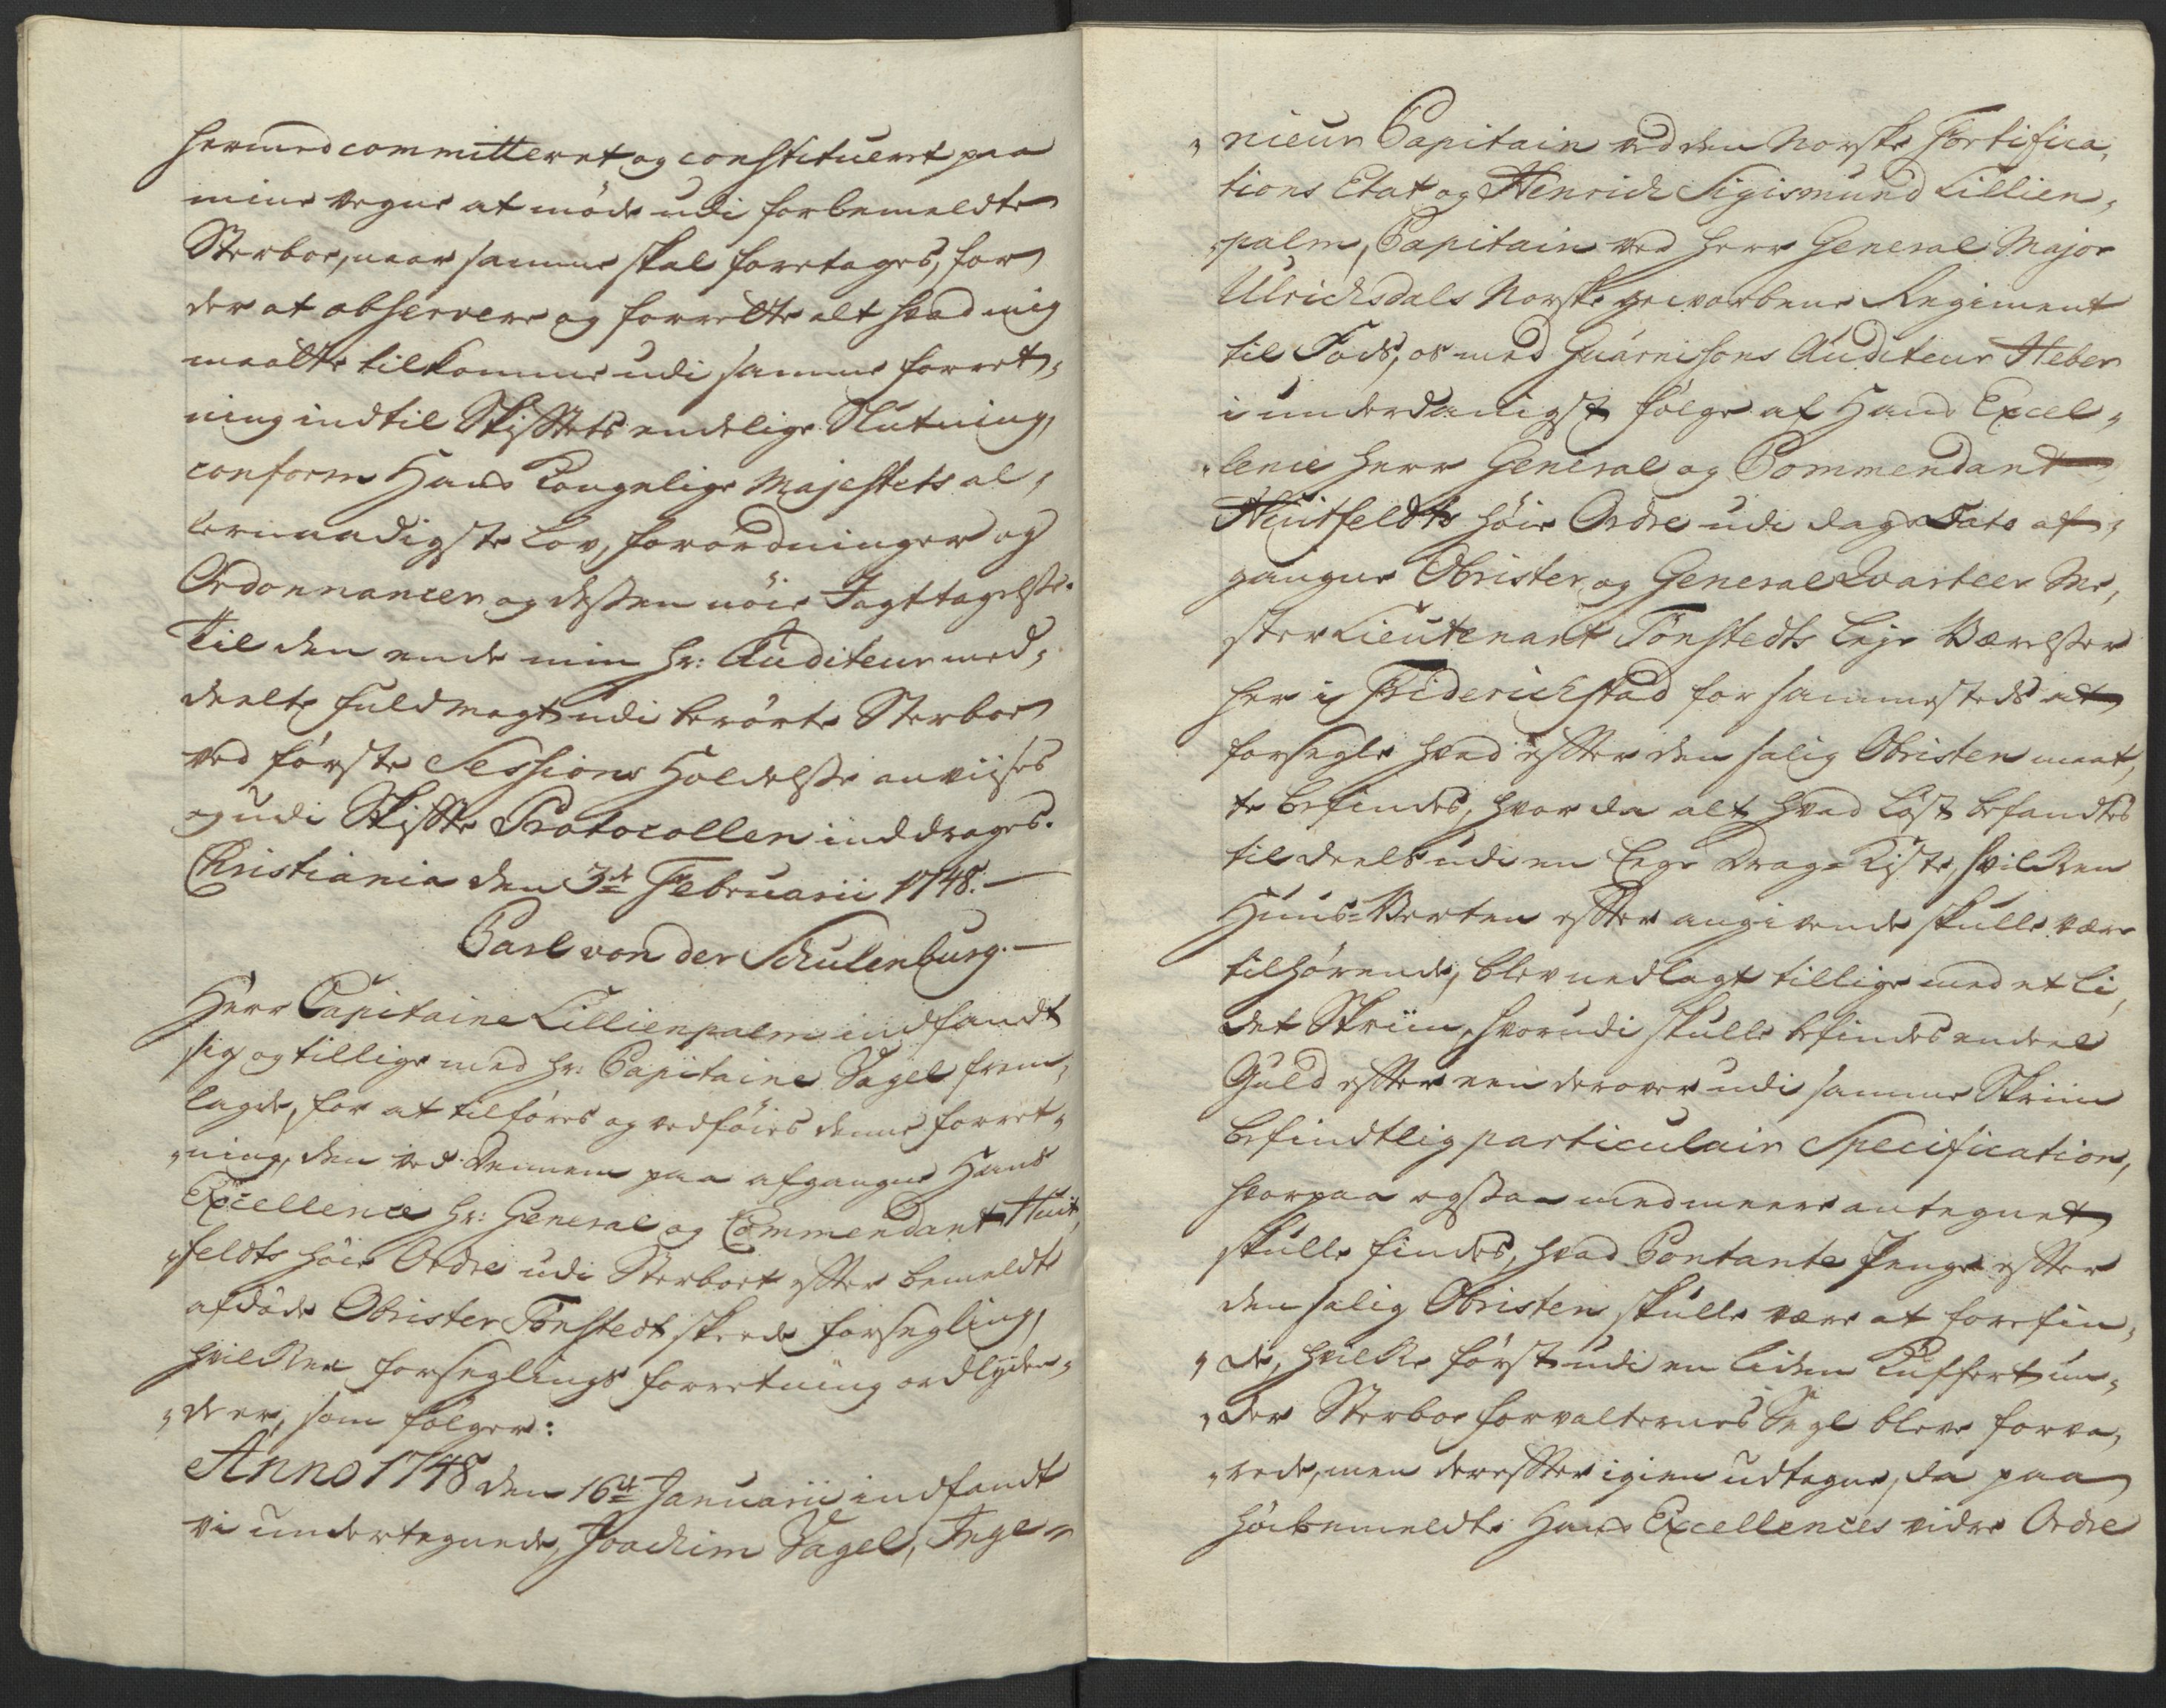 hermed committeret og constitueret paa
mine Vegne at møde udi forbemeldte
Sterboe, naar samme skal foretages, for
der at observere og forrette alt hvad mig
maatte tilkomme udi samme forret,
ning indtil Skiftets endelige Slutning,
conform Hans Kongelige Majestets al,
lernaadigste Lov, forordninger og
Ordonnancer og dessen nöie Jagttagelse.
Til den ende min Hr: Auditeur med,
deelte fuldmagt udi berörte Sterboe
ved förste Sessions Holdelse anviises
og udi Skifte Protocollen inddrages.
Christiania den 3de Februarii 1748. —
Carl von der Schulenburg. —
Herr Capitaine Lillienpalm indfandt
sig og tillige med Hr: Capitaine Sagel frem,
lagde, for at tilföres og vedföies denne forret,
„ning, den ved Dennem paa afgangne Hans
Excellence Hr: General og Commendant Huit,
„feldts höie Ordre udi Sterboet efter bemeldte
afdöde Obrister Tönstedt skeede forsegling,
hvilken forseglings forretning ordlyden,
„de er, som fölger:
Anno 1748 den 16de Januarii indfandt
vi undertegnede, Joachim Sagel, Inge„
„nieur Capitain ved den Norske Fortifica,
tions Etat og Henrich Sigismund Lillien,
„palm, Capitain ved Herr General Major
Ulrichsdals Norske gevorbene Regiment
til Fods, os med Guarnisons Auditeur Heber
i underdanigst fölge af Hans Excel„
„lence Herr General og Commendant
Huitfeldts höie Ordre udi dag Dato af,
gangne Obrister og General Qvarteer Me,
ster Lieutenant Tönstedts Leje Værelser
her i Friderichstad for sammesteds at
forsegle hvad efter den salig Obristen maat,
te befindes, hvor da alt hvad Löst befandtes
til deels udi en Lege Drag-Kiste, hvilken
Huus-Verten efter angivende skulle være
tilhörende, blev nedlagt tillige med et li,
det Skriin, hvorudi skulle befindes endeel
Guld efter een derover udi samme Skriin
befindtlig particulair Specification,
hvorpaa ogsaa med meere antegnet
skulle findes, hvad Contante Penge efter
den salig Obristen skulle være at forefin,
„de, hvilke först udi en liden Kuffert un„
„der Sterboe forvalternes Segl bleve forva,
„rede, men derefter igien udtagne, da paa
höibemeldte Hans Excellences vidre Ordre